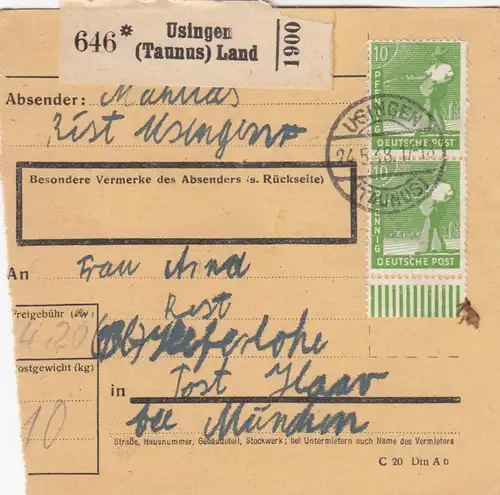 646*
Usingen
(Taunus) Land
1900
10
PFENNIG
DEUTSCHE POST
USINGEN
24.5.48.17-18
(TAUNUS)
10
PFENNIG
DEUTSCHE POST
Absender: Mathias
Usingen
Besondere Vermerke des Absenders (s. Rückseite)
An Frau Arnd
Post
Freigebühr
4,20
Postgewicht (kg)
10
in Post Haar
bei München
Straße, Hausnummer, Gebäudeteil, Stockwerk; bei Untermietern auch Name des Vermieters
C 20 Din A 6